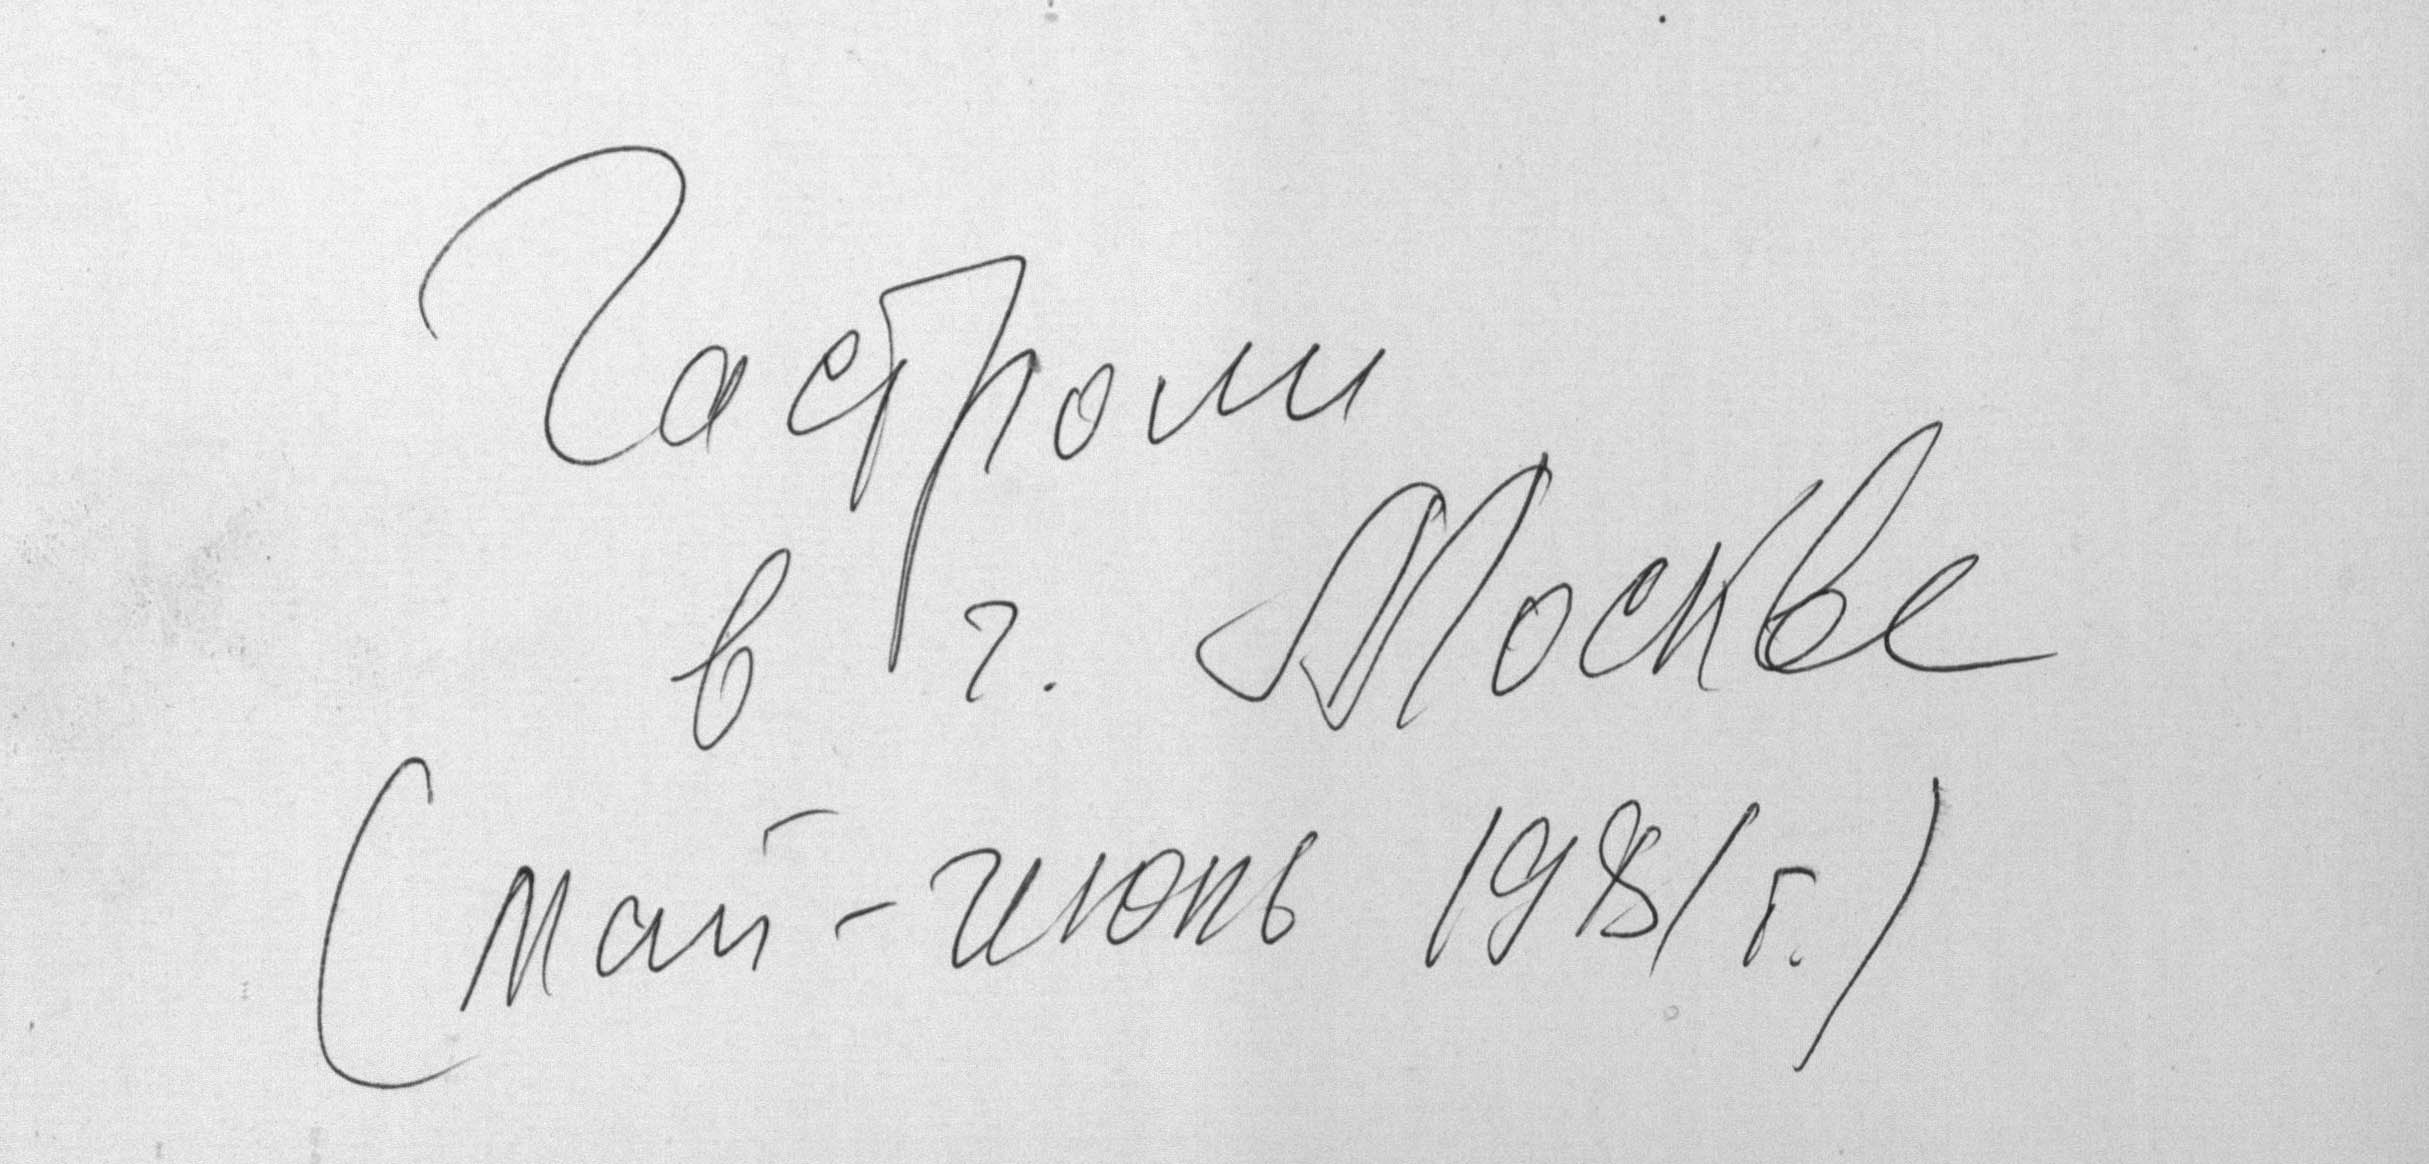 Гастроли
в г. Москве
(май-июнь 1981 г.)